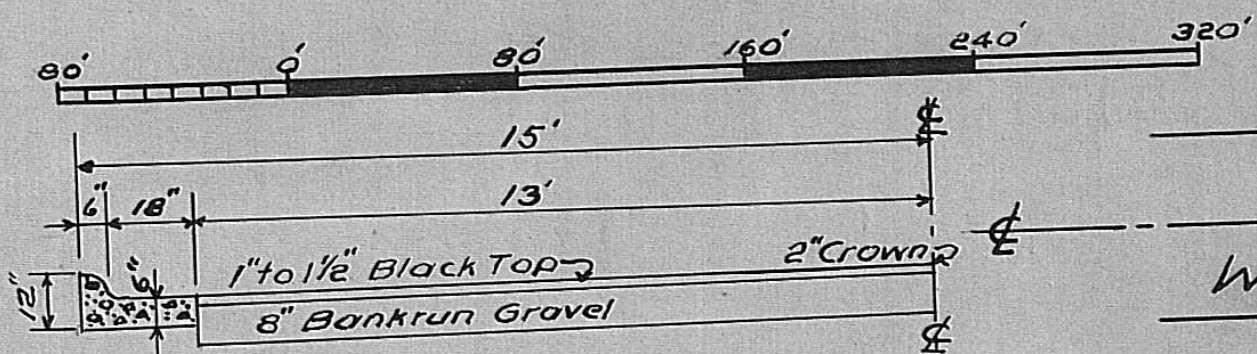 80' 0' 80' 160' 240' 320'
15' ℄
6" 18" 13'
℄
1" to 1½" Black Top 2" Crown
12" 6"
8" Bankrun Gravel
℄